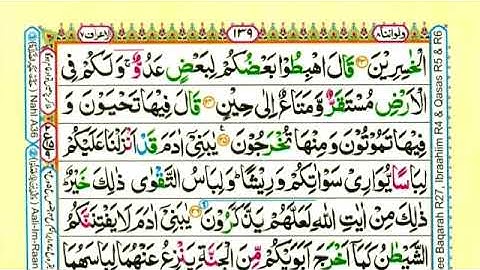 ولواننا ٨
١٣٩
اعراف ٧
الْخٰسِرِيْنَ ۝٢٣ قَالَ اهْبِطُوْا بَعْضُكُمْ لِبَعْضٍ عَدُوٌّ ۚ وَلَكُمْ فِى
الْاَرْضِ مُسْتَقَرٌّ وَّمَتَاعٌ اِلٰى حِيْنٍ ۝٢٤ قَالَ فِيْهَا تَحْيَوْنَ وَ
فِيْهَا تَمُوْتُوْنَ وَمِنْهَا تُخْرَجُوْنَ ۝٢٥ يٰبَنِىْٓ اٰدَمَ قَدْ اَنْزَلْنَا عَلَيْكُمْ
لِبَاسًا يُّوَارِىْ سَوْاٰتِكُمْ وَرِيْشًا ؕ وَلِبَاسُ التَّقْوٰى ۙ ذٰلِكَ خَيْرٌ ؕ
ذٰلِكَ مِنْ اٰيٰتِ اللّٰهِ لَعَلَّهُمْ يَذَّكَّرُوْنَ ۝٢٦ يٰبَنِىْٓ اٰدَمَ لَا يَفْتِنَنَّكُمُ
الشَّيْطٰنُ كَمَآ اَخْرَجَ اَبَوَيْكُمْ مِّنَ الْجَنَّةِ يَنْزِعُ عَنْهُمَا لِبَاسَهُمَا
Nahl A36
Aali-Im-Raan
ee Baqarah R27, Ibraahiim R4 & Qasas R5 & R6